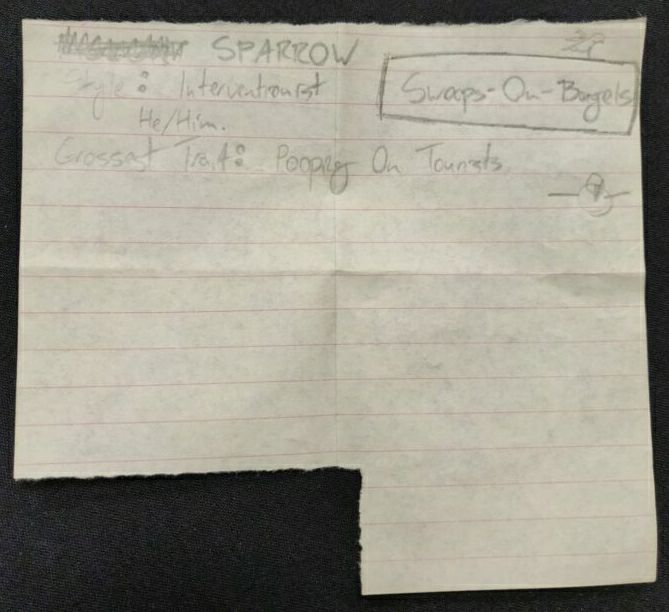 SPARROW
Swoops-On-Bagels
Style: Interventionist
He/Him.
Grossest Trait: Pooping On Tourists